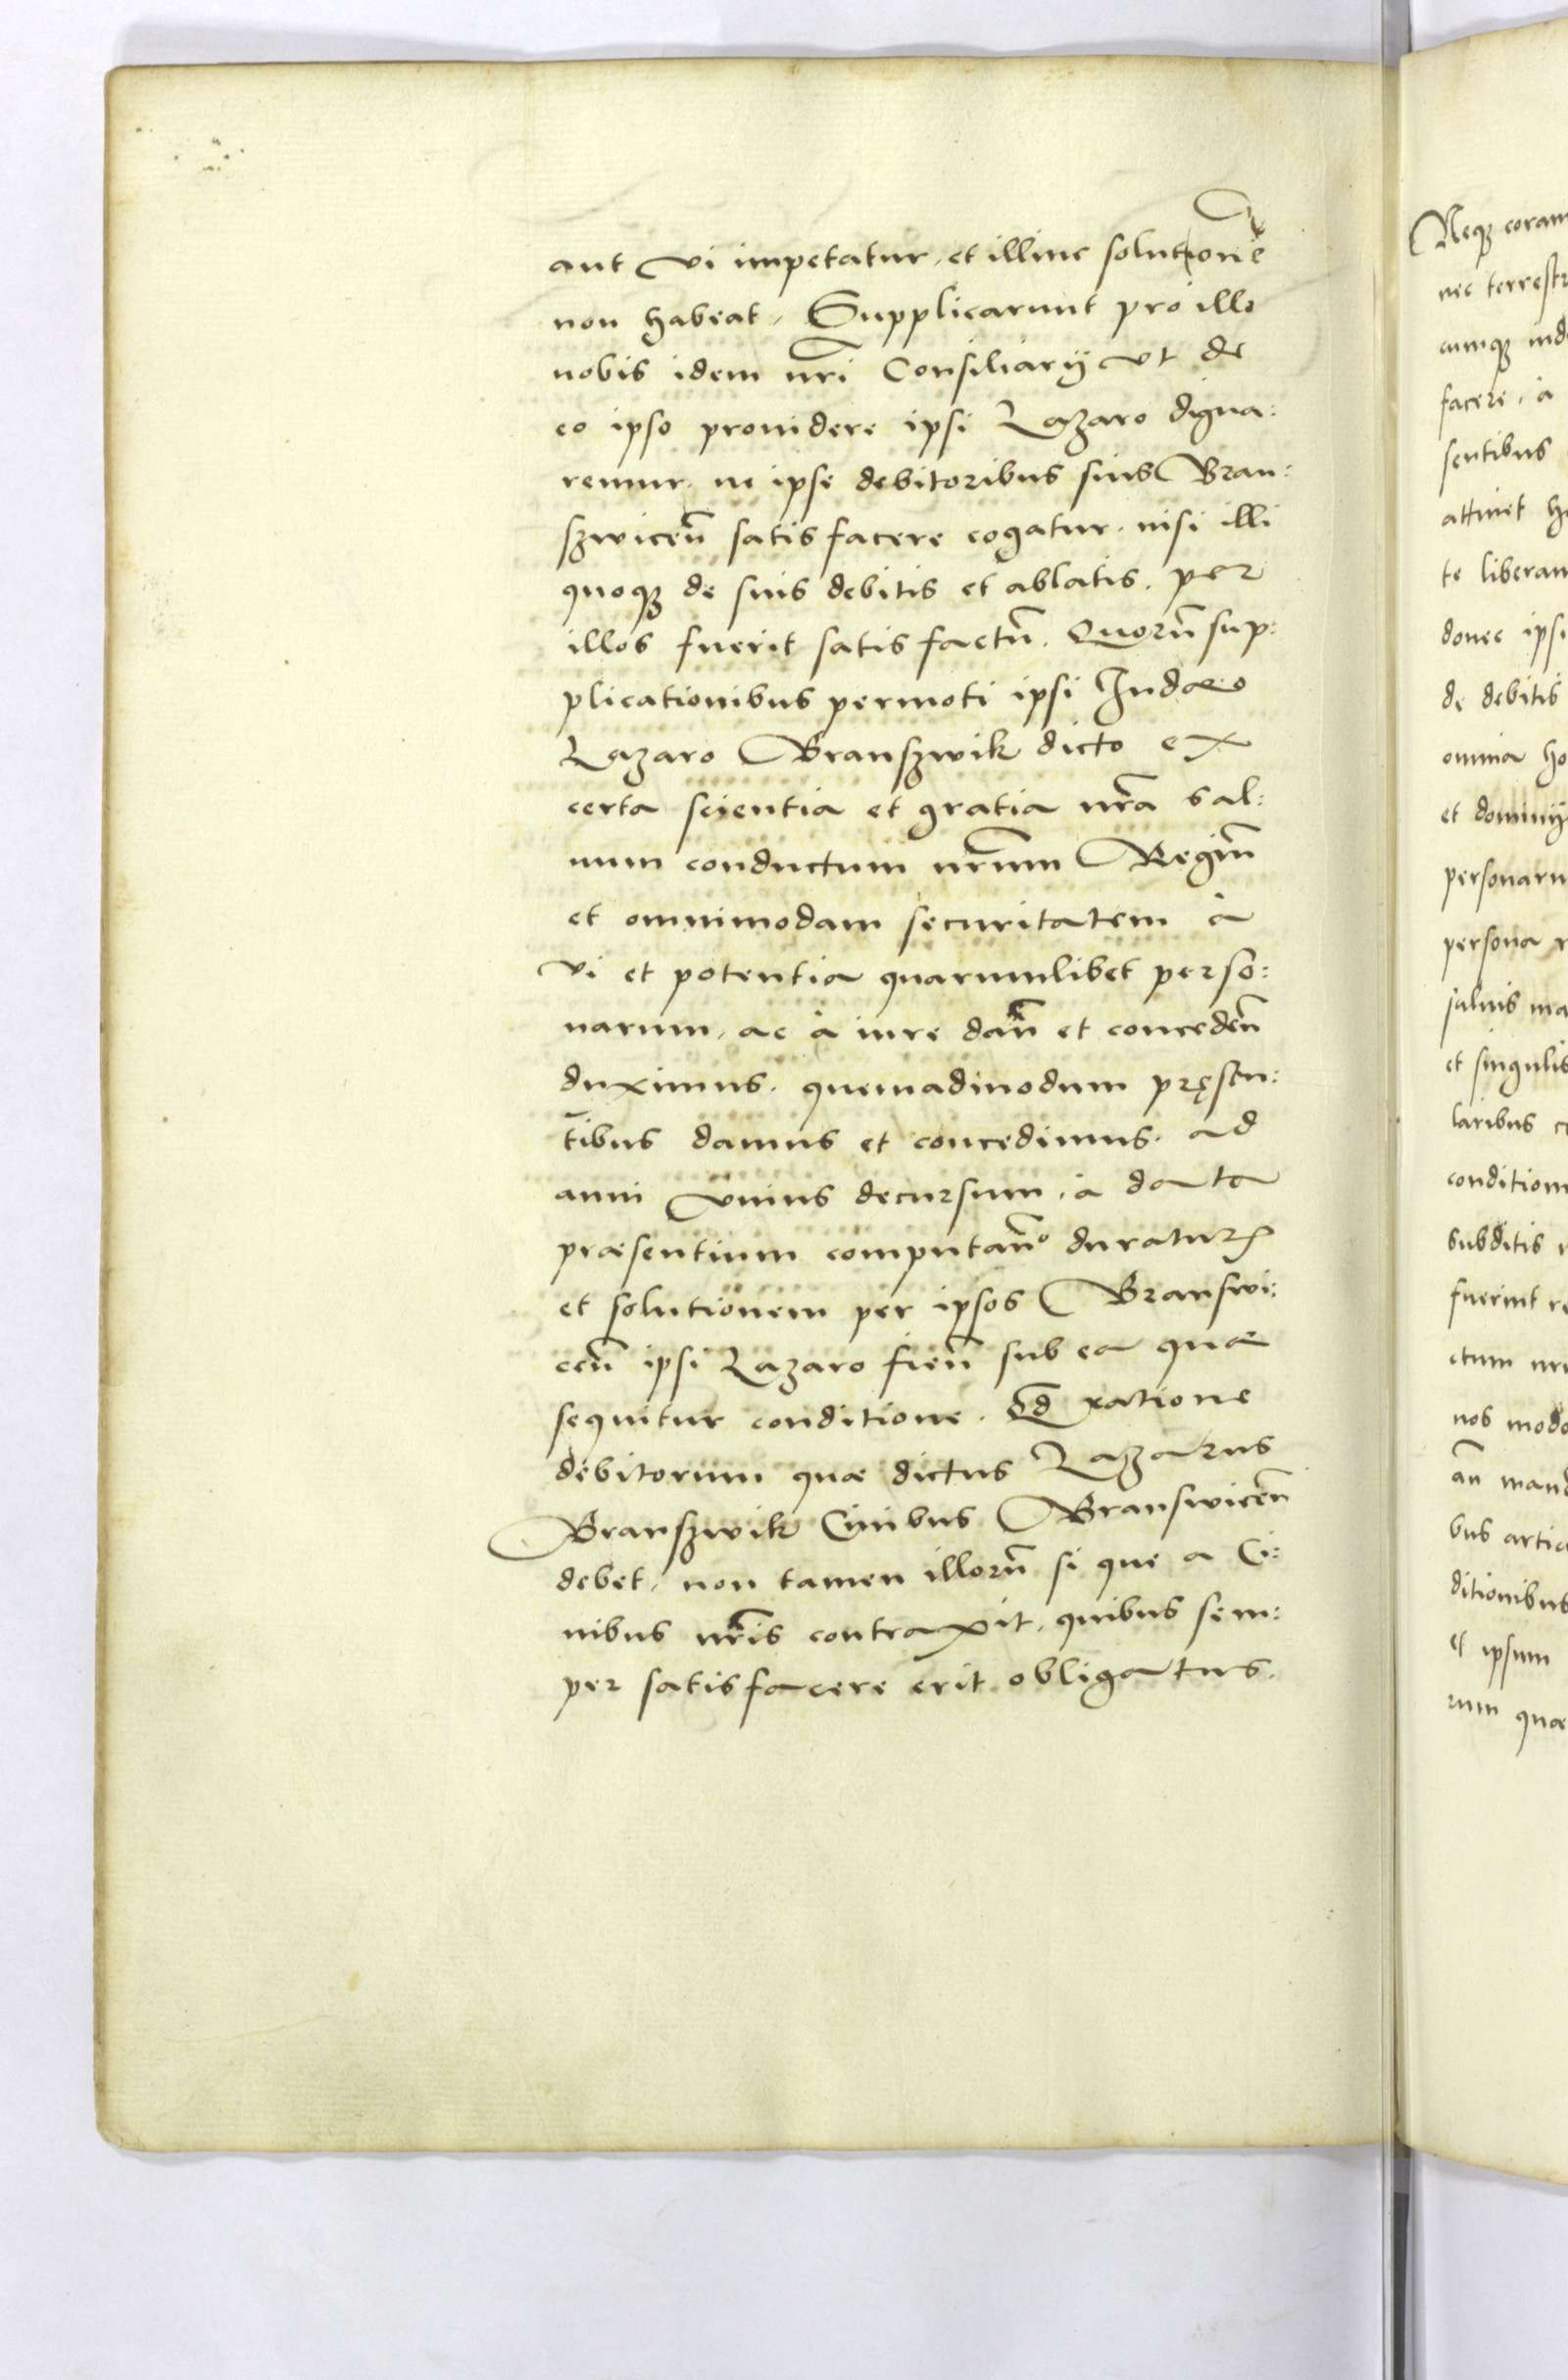 aut vi impetatur, et illinc solutionē
non habeat, Supplicarunt pro illo
nobis idem nr̄i Consiliarij vt de
eo ipso prouidere ipsi Lazaro digna:
remur. ne ipse debitoribus suis Bran:
szwiceñ satis facere cogatur. nisi illi
quoqꝫ de suis debitis et ablatis. per
illos fuerit satis factū. Quorū sup:
plicationibus permoti ipsi Iudæo
Lazaro Branszwik dicto ex
certa scientia et gratia nr̄a sal:
uum conductum nr̄um Regiū
et omnimodam securitatem à
vi et potentia quarumlibet perso:
narum, ac à iure dañ et concedeñ
duximus. quemadmodum pręsen:
tibus damus et concedimus. ad
anni vnius decursum, à data
præsentium computanº duraturꝝ
et solutionem per ipsos Branswi:
ceñ ipsi Lazaro fieñ sub ea quæ
sequitur conditione. Qd̄ ratione
debitorum quæ dictus Lazarus
Branszwik Ciuibus Branswiceñ
debet, non tamen illorū si que a Ci:
uibus nr̄is contraxit, quibus sem:
per satisfacere erit obligatus.
Neqꝫ coram
nec terrestr
cumqꝫ iud
facere, à
sentibus
attinet h
te liberam
donec ipsi
de debitis
omnia ho
et dominij
personaru
persona
saluis ma
et singulis
laribus c
condition
subditis
fuerint re
ctum nr
nos modo
añ mand
bus artic
ditionibus
et ipsum
rum quæ